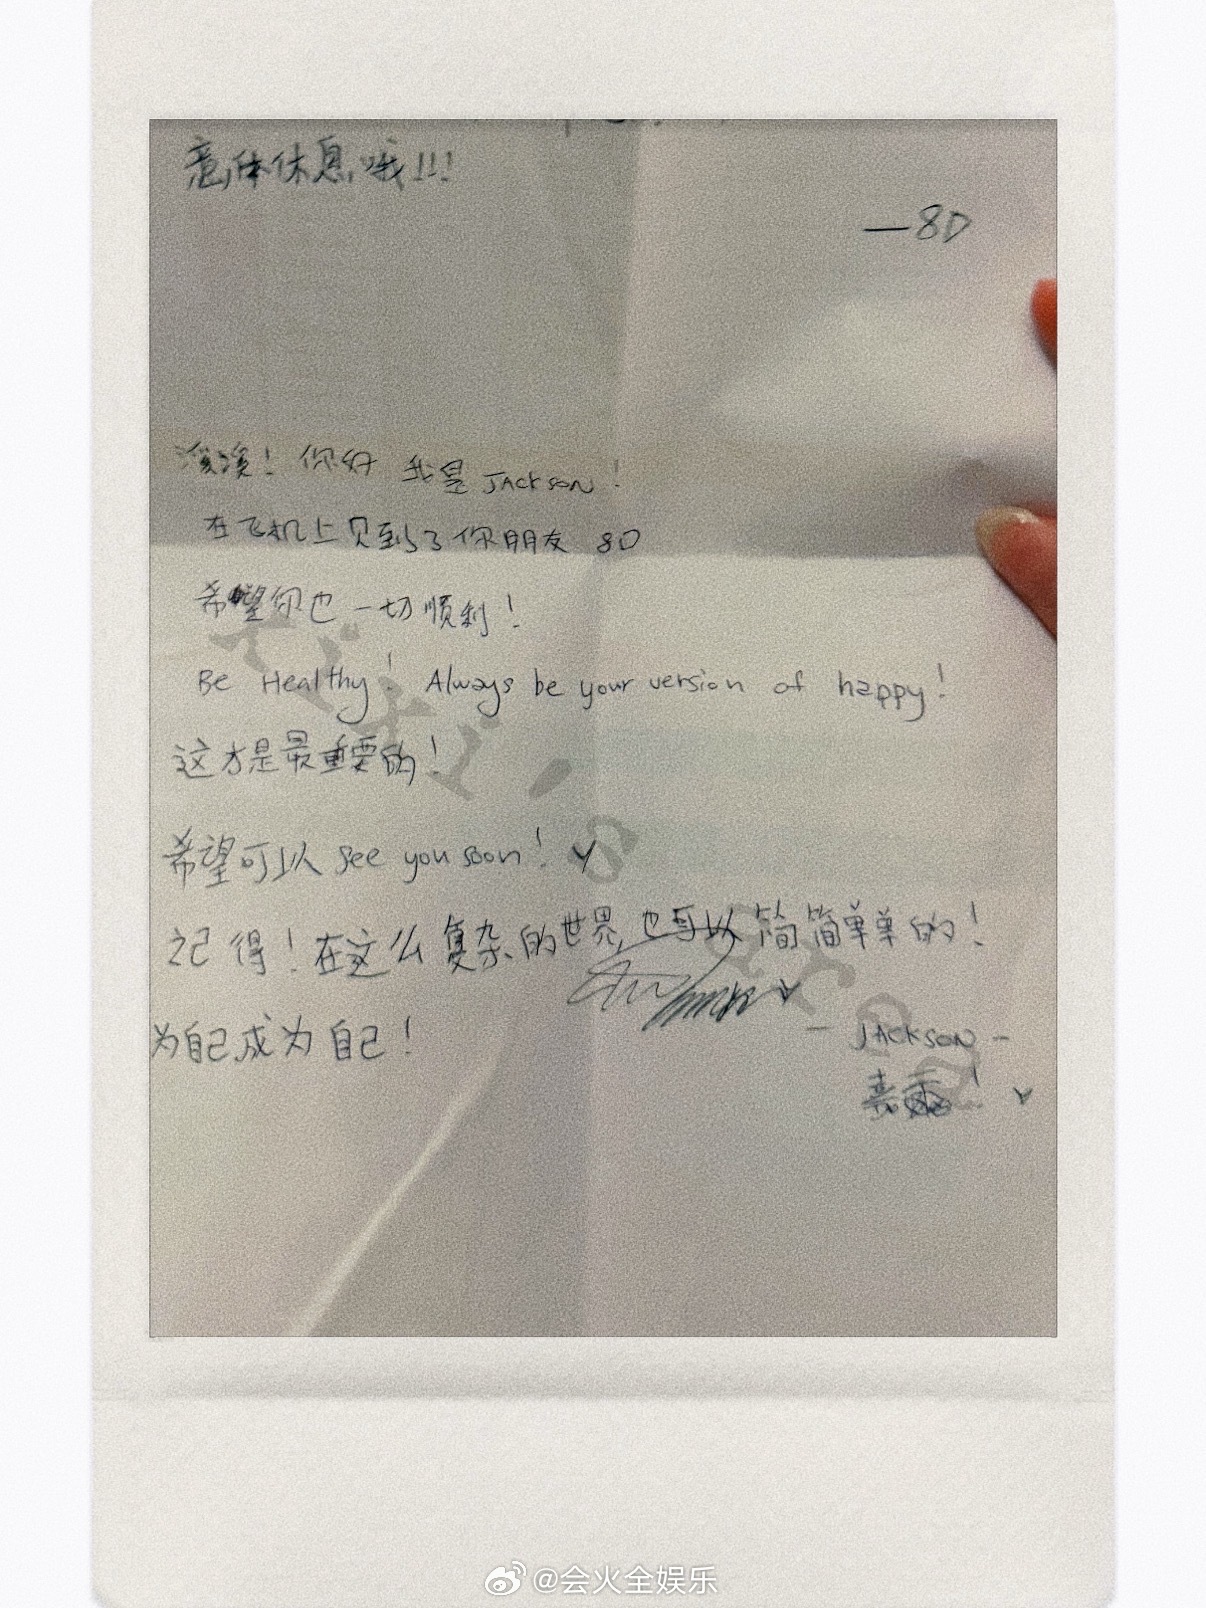 意体休息哦!!!
—8D
溪溪！你好 我是JACKSON！
在飞机上见到了你朋友 8D
希望你也一切顺利！
Be Healthy! Always be your version of happy!
这才是最重要的！
希望可以 see you soon!
记得！在这么复杂的世界,也可以简简单单的！
为自己成为自己！
- JACKSON -
嘉
@会火全娱乐